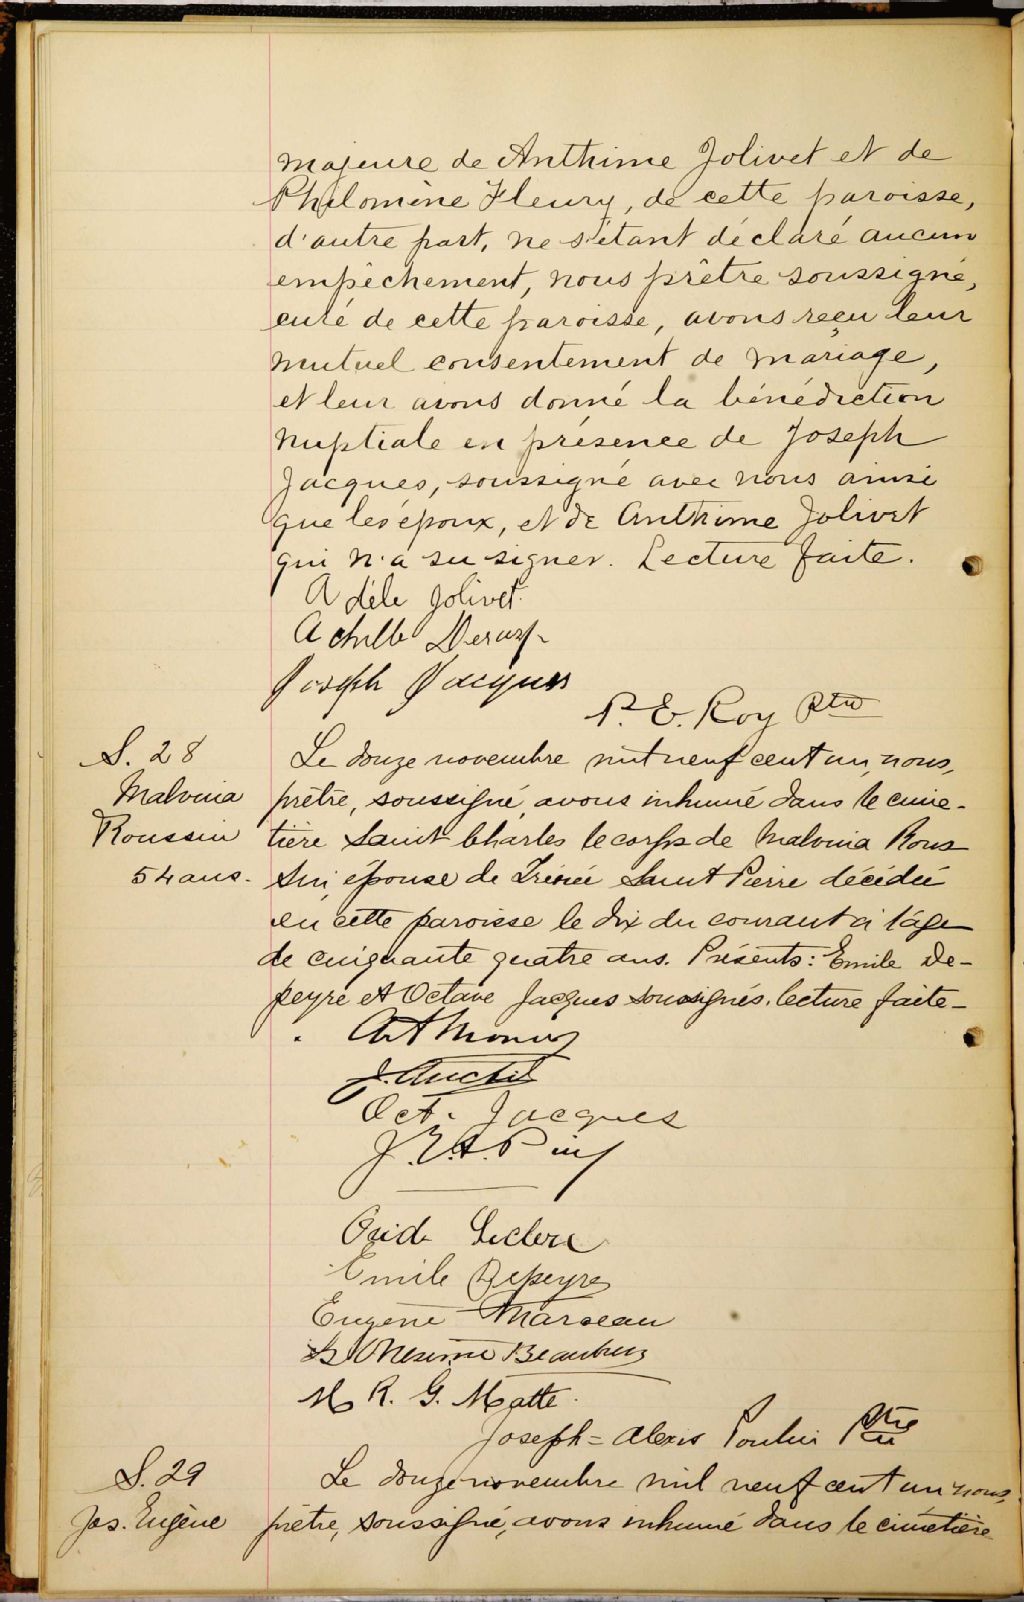 majeure de Anthime Jolivet et de
Philomène Fleury, de cette paroisse,
d'autre part, ne s'étant déclaré aucun
empêchement, nous prêtre soussigné,
curé de cette paroisse, avons reçu leur
mutuel consentement de mariage,
et leur avons donné la bénédiction
nuptiale en présence de Joseph
Jacques, soussigné avec nous ainsi
que les époux, et de Anthime Jolivet
qui n'a su signer. Lecture faite.
Adèle Jolivet.
Achille
Joseph Jacques
P. E. Roy Ptre
S. 28
Malvina
Roussin
54 ans.
Le douze novembre mil neuf cent un, nous,
prêtre, soussigné, avons inhumé dans le cime-
tière Saint Charles le corps de Malvina Rous
sin, épouse de Irénée Saint Pierre décédée
en cette paroisse le dix du courant à l'âge
de cinquante quatre ans. Présents: Emile De-
peyre et Octave Jacques soussignés. lecture faite-
Oct. Jacques
Ovide Leclerc
Emile Depeyre
Eugène Marceau
M R. G. Matte.
Joseph-Alexis Poulin Ptre
S. 29
Jos. Eugène
Le douze novembre mil neuf cent un nous,
prêtre, soussigné, avons inhumé dans le cimetière